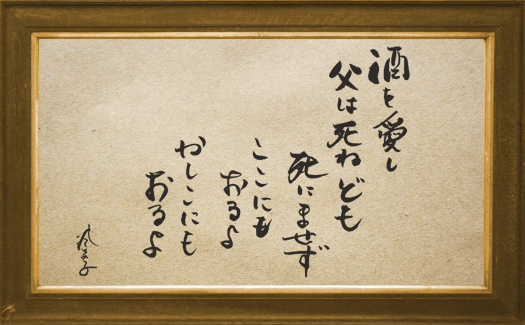 酒を愛し
父は死ねども
死にませず
ここにも
おるよ
かしこにも
おるよ